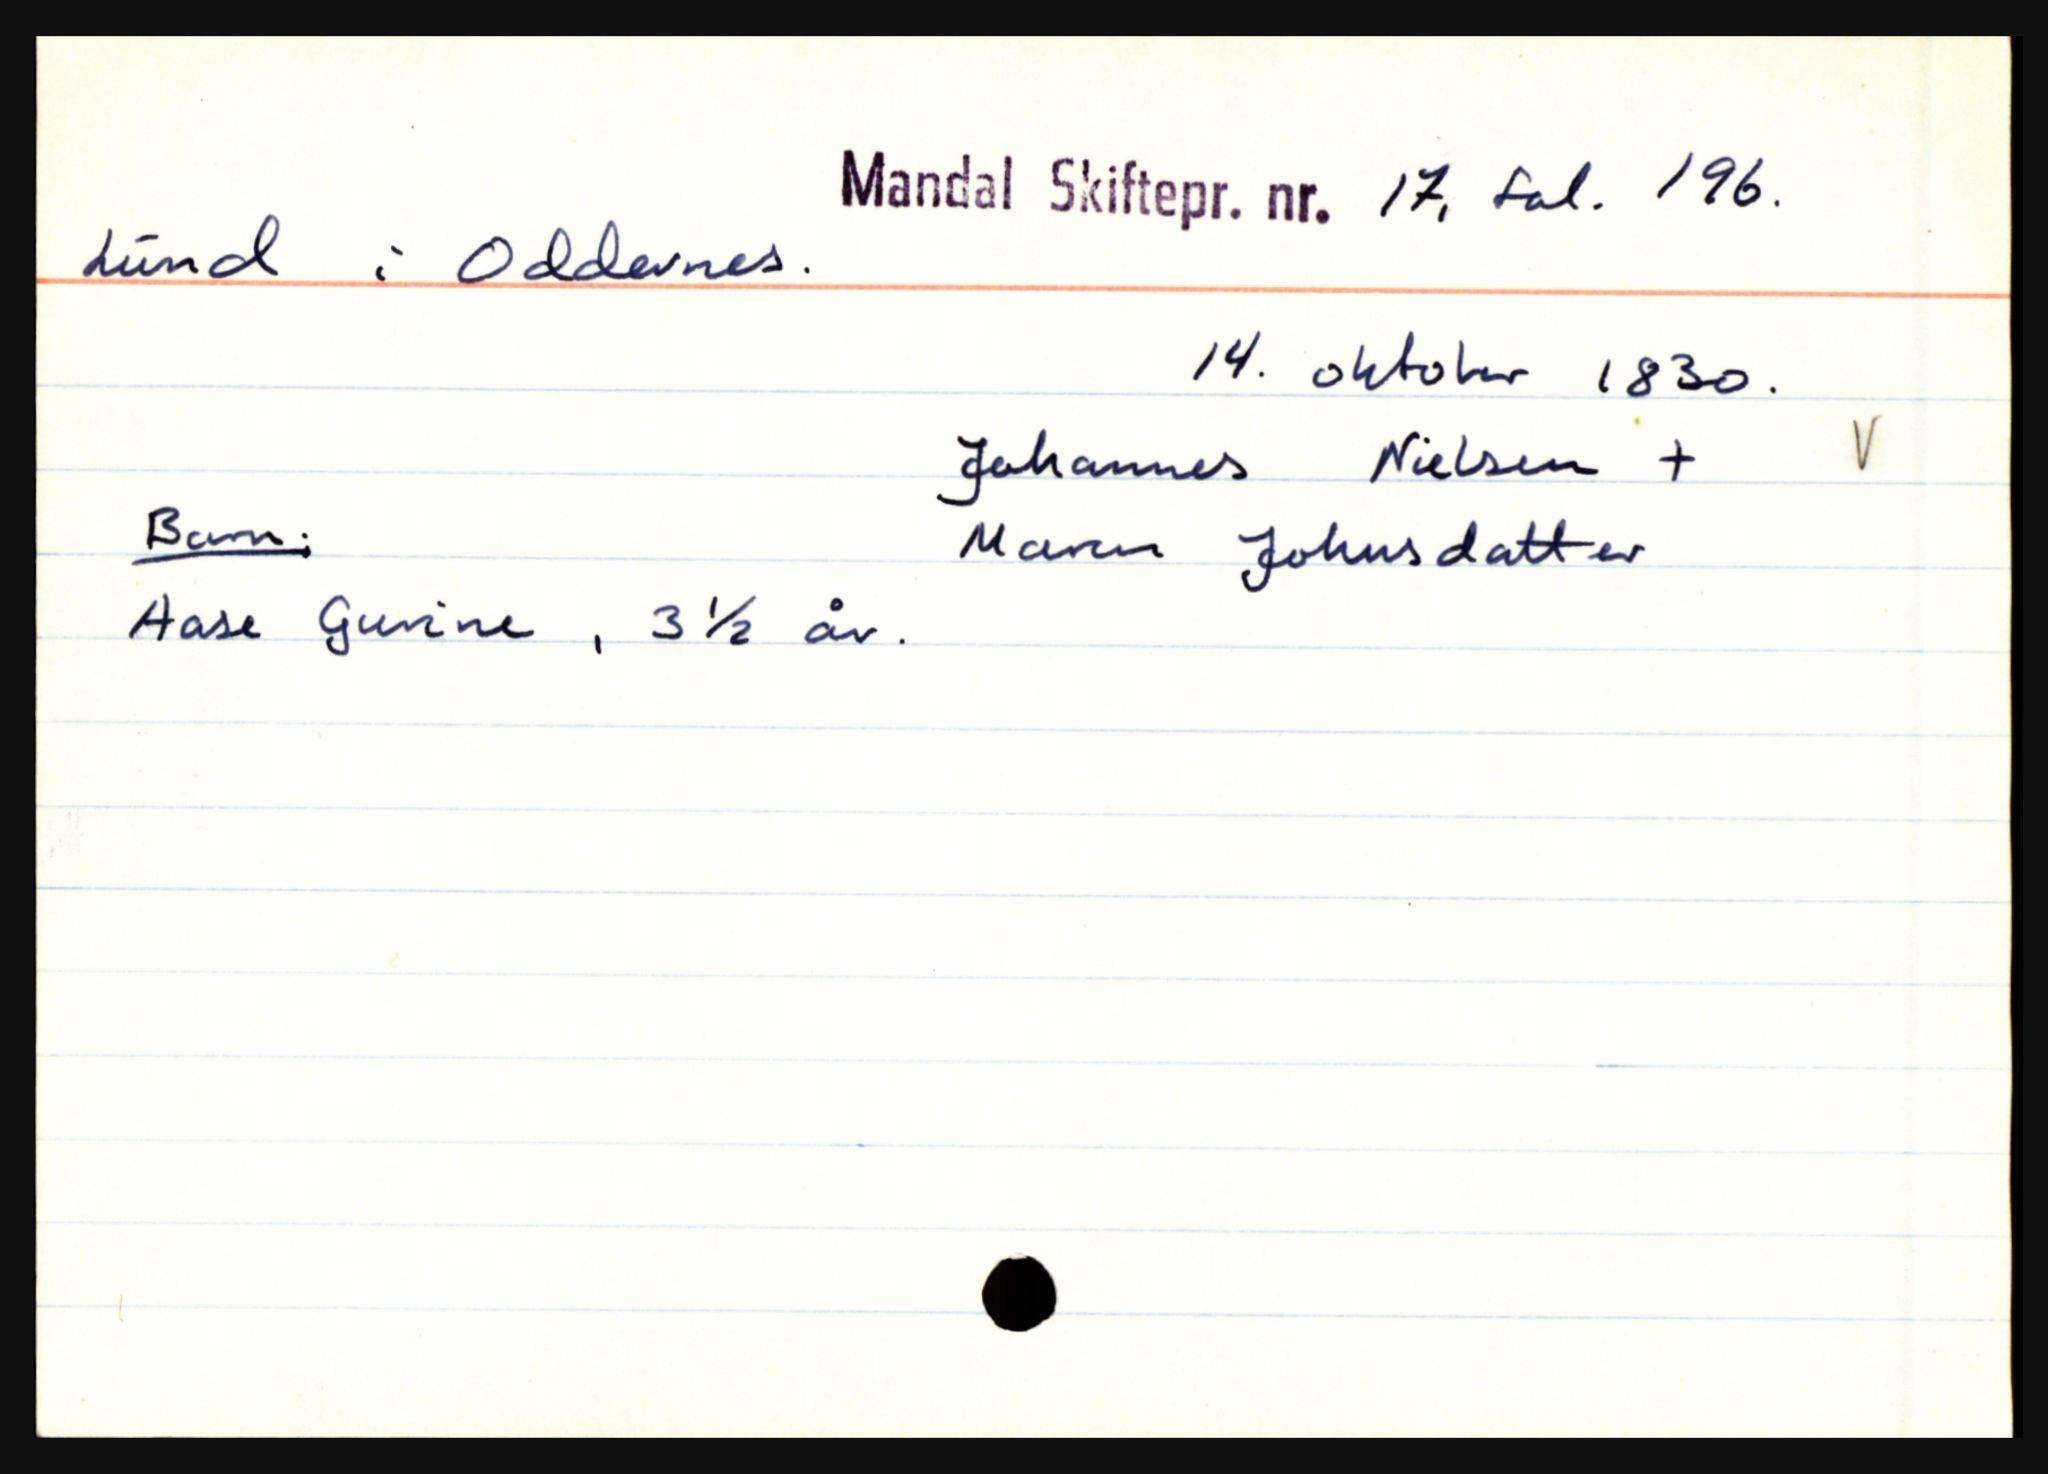 Mandal Skiftepr. nr. 17, fol. 196.
Lund i Oddernes.
14. oktober 1830.
Johannes Nielsen + V
Barn: Maren Johnsdatter
Aase Gurine, 3 1/2 år.